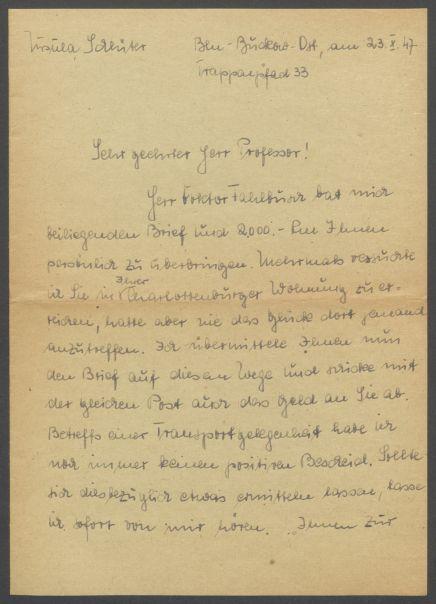 Ursula Schlüter Bln-Buckow-Ost, am 23. X. 47
Trappenpfad 33
Sehr geehrter Herr Professor!
Herr Doktor Fahlbusch bat mich
beiliegenden Brief und 2000.- RM Ihnen
persönlich zu überbringen. Mehrmals versuchte
ich Sie in Ihrer Charlottenburger Wohnung zu er-
reichen, hatte aber nie das Glück dort jemand
anzutreffen. Ich übermittele Ihnen nun
den Brief auf diesem Wege und schicke mit
der gleichen Post auch das Geld an Sie ab.
Betreffs einer Transportgelegenheit habe ich
noch immer keinen positiven Bescheid. Sollte
sich diesbezüglich etwas ermitteln lassen, lasse
ich sofort von mir hören. Ihnen zur